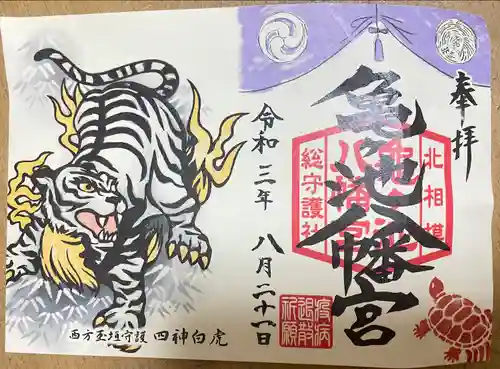 奉拝
亀ヶ池八幡宮
北相模
総守護社
令和三年 八月二十一日
疫病
退散
祈願
西方至垣守護 四神白虎